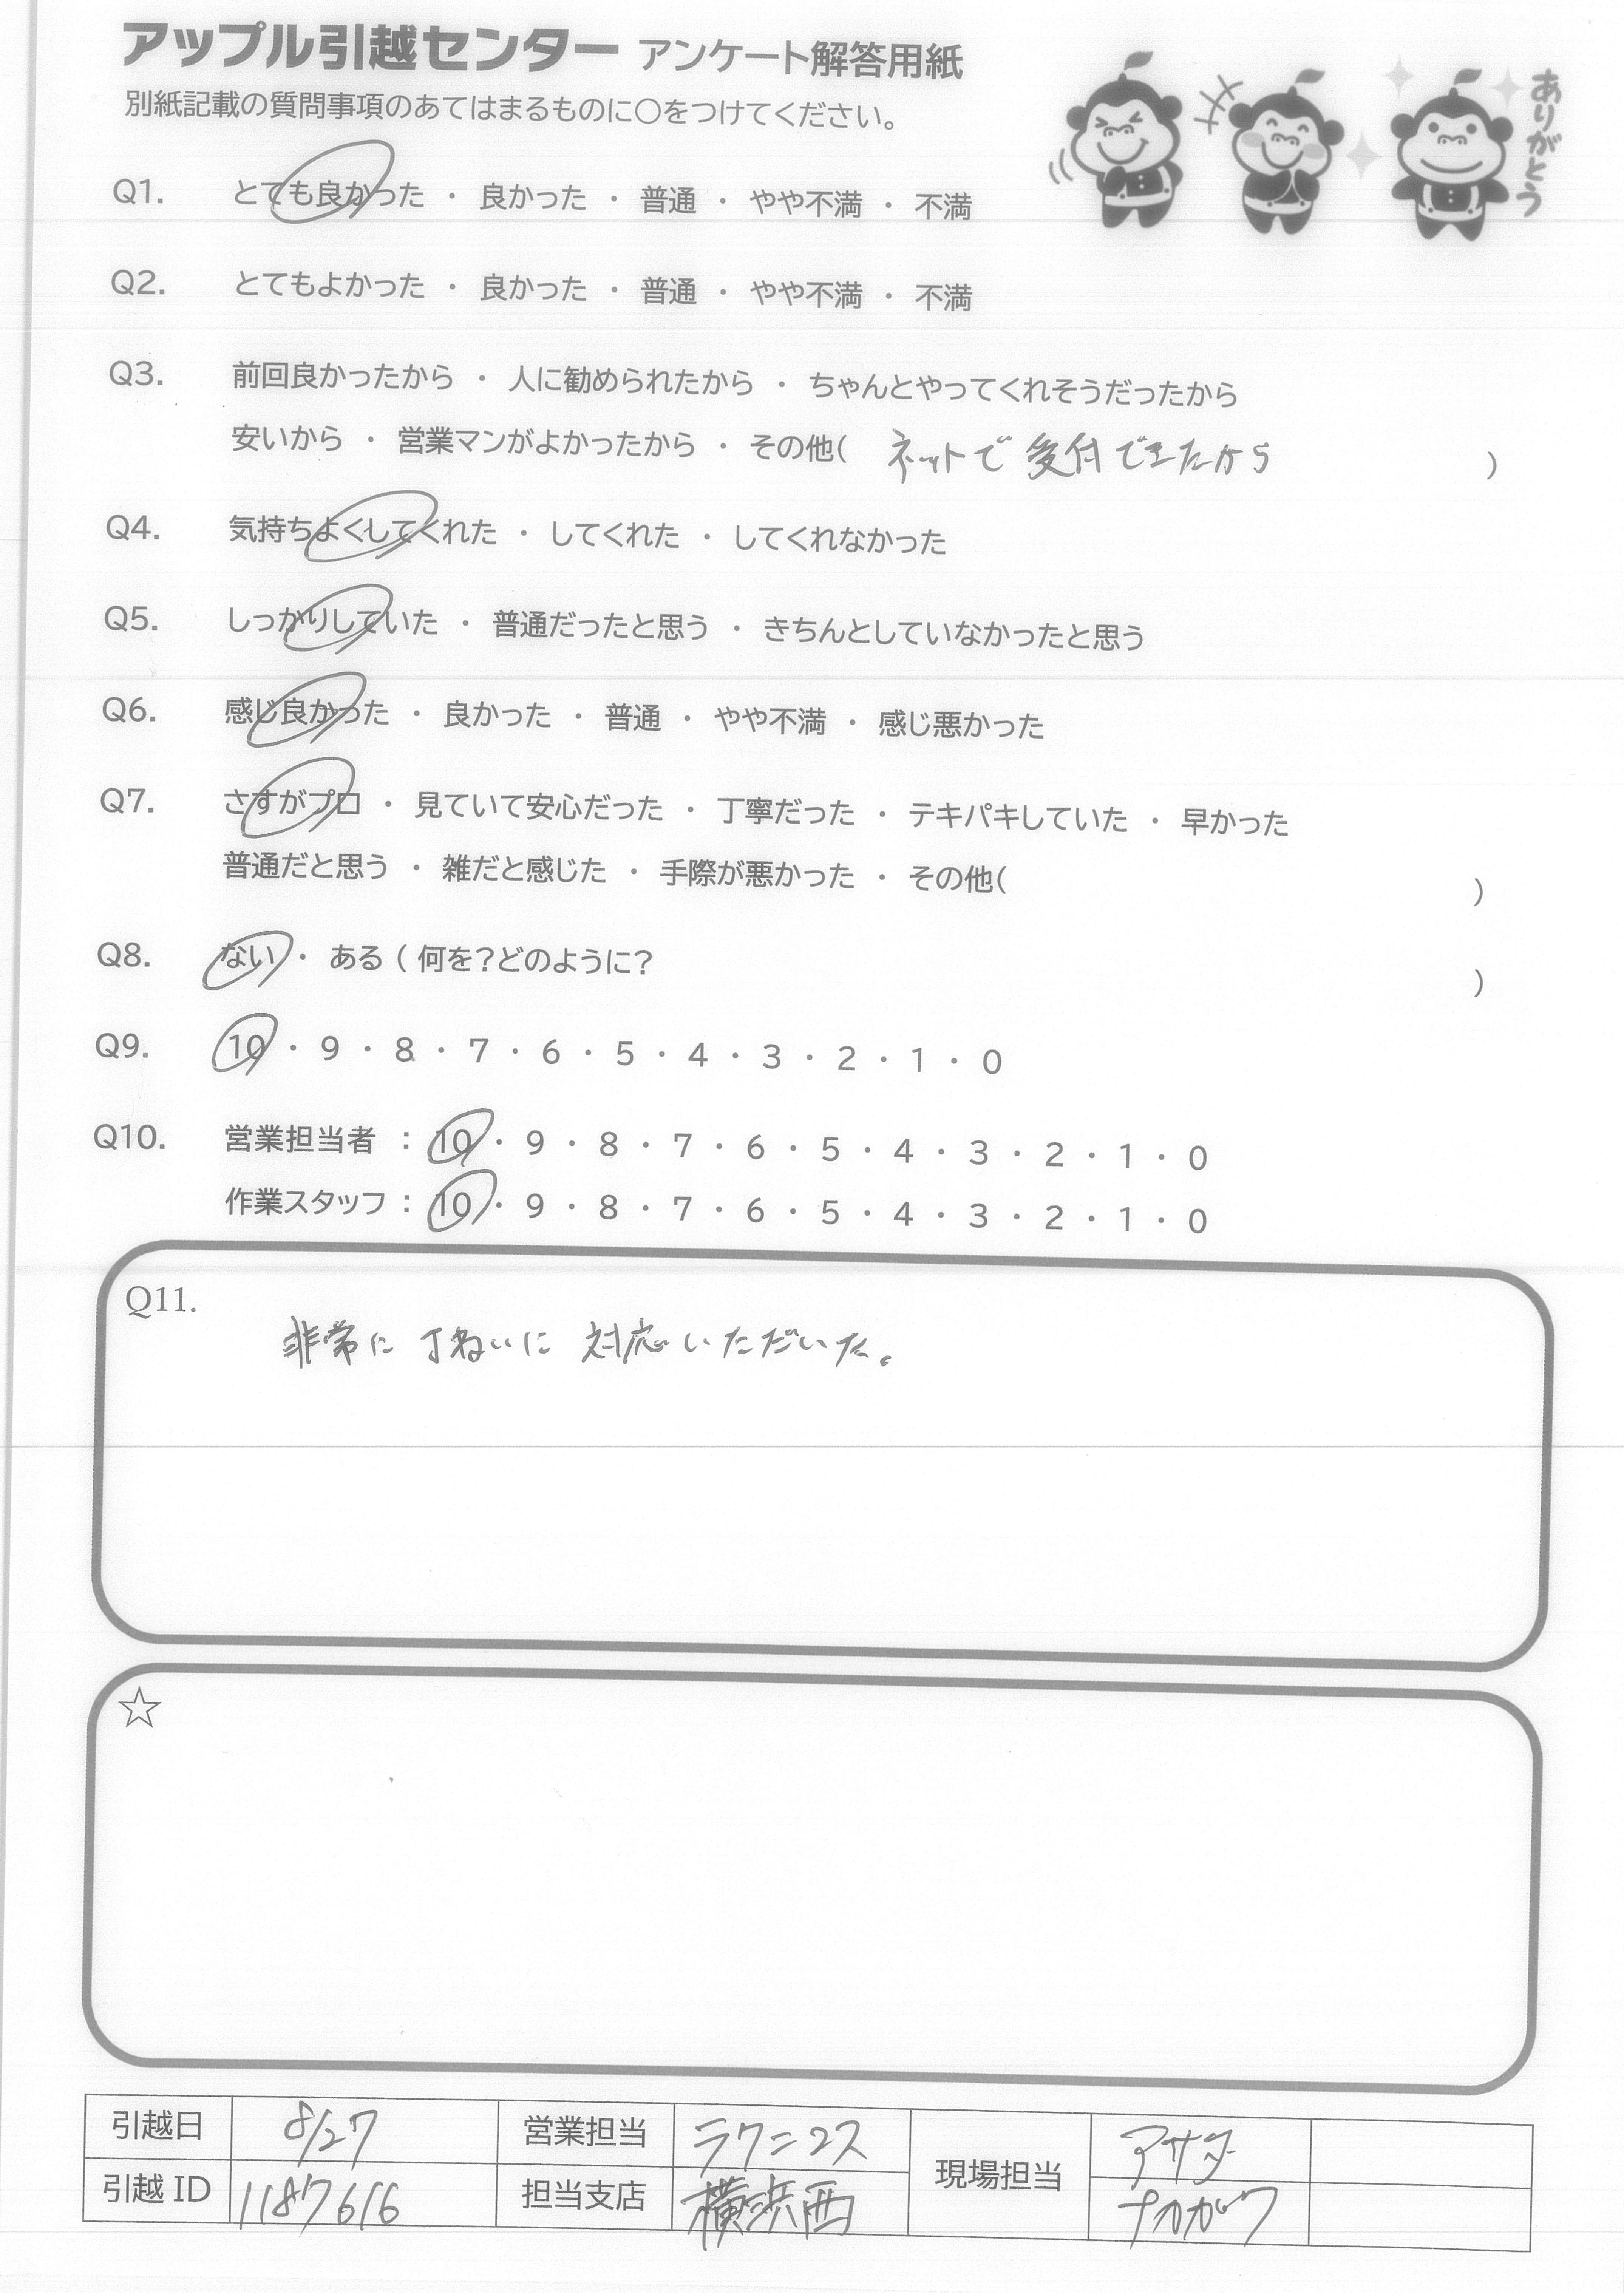 アップル引越センター アンケート解答用紙
別紙記載の質問事項のあてはまるものに○をつけてください。
ありがとう
Q1. とても良かった ・ 良かった ・ 普通 ・ やや不満 ・ 不満
Q2. とてもよかった ・ 良かった ・ 普通 ・ やや不満 ・ 不満
Q3. 前回良かったから ・ 人に勧められたから ・ ちゃんとやってくれそうだったから
安いから ・ 営業マンがよかったから ・ その他( ネットで受付できたから )
Q4. 気持ちよくしてくれた ・ してくれた ・ してくれなかった
Q5. しっかりしていた ・ 普通だったと思う ・ きちんとしていなかったと思う
Q6. 感じ良かった ・ 良かった ・ 普通 ・ やや不満 ・ 感じ悪かった
Q7. さすがプロ ・ 見ていて安心だった ・ 丁寧だった ・ テキパキしていた ・ 早かった
普通だと思う ・ 雑だと感じた ・ 手際が悪かった ・ その他( )
Q8. ない ・ ある ( 何を?どのように? )
Q9. 10 ・ 9 ・ 8 ・ 7 ・ 6 ・ 5 ・ 4 ・ 3 ・ 2 ・ 1 ・ 0
Q10. 営業担当者 : 10 ・ 9 ・ 8 ・ 7 ・ 6 ・ 5 ・ 4 ・ 3 ・ 2 ・ 1 ・ 0
作業スタッフ : 10 ・ 9 ・ 8 ・ 7 ・ 6 ・ 5 ・ 4 ・ 3 ・ 2 ・ 1 ・ 0
Q11.
非常に丁ねいに対応いただいた。
☆
引越日 8/27 営業担当 ラクニコス 現場担当 アサダ
引越 ID 1187616 担当支店 横浜西 ナカガワ